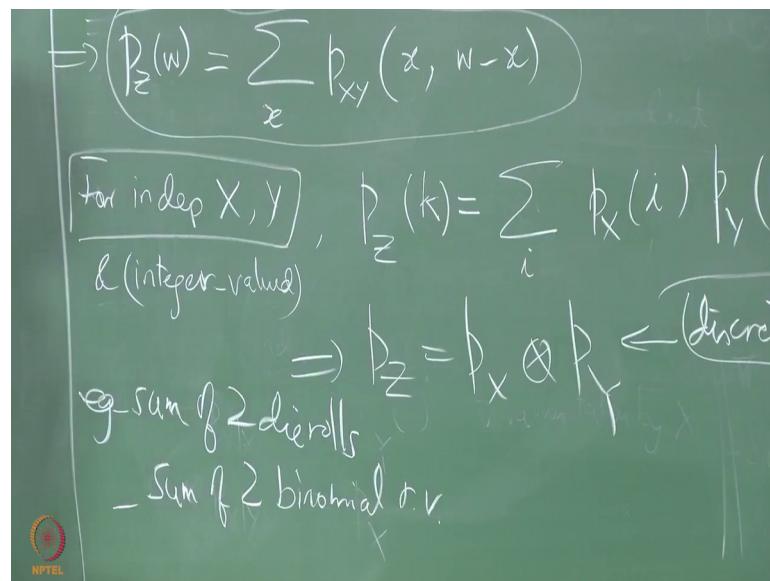 ⇒ p_Z(w) = ∑_x p_XY(x, w-x)
For indep X, Y , p_Z(k) = ∑_i p_X(i) p_Y(
& (integer-valued)
⇒ p_Z = p_X ⊗ p_Y ← (discre
eg - sum of 2 die rolls
- sum of 2 binomial r.v.
NPTEL